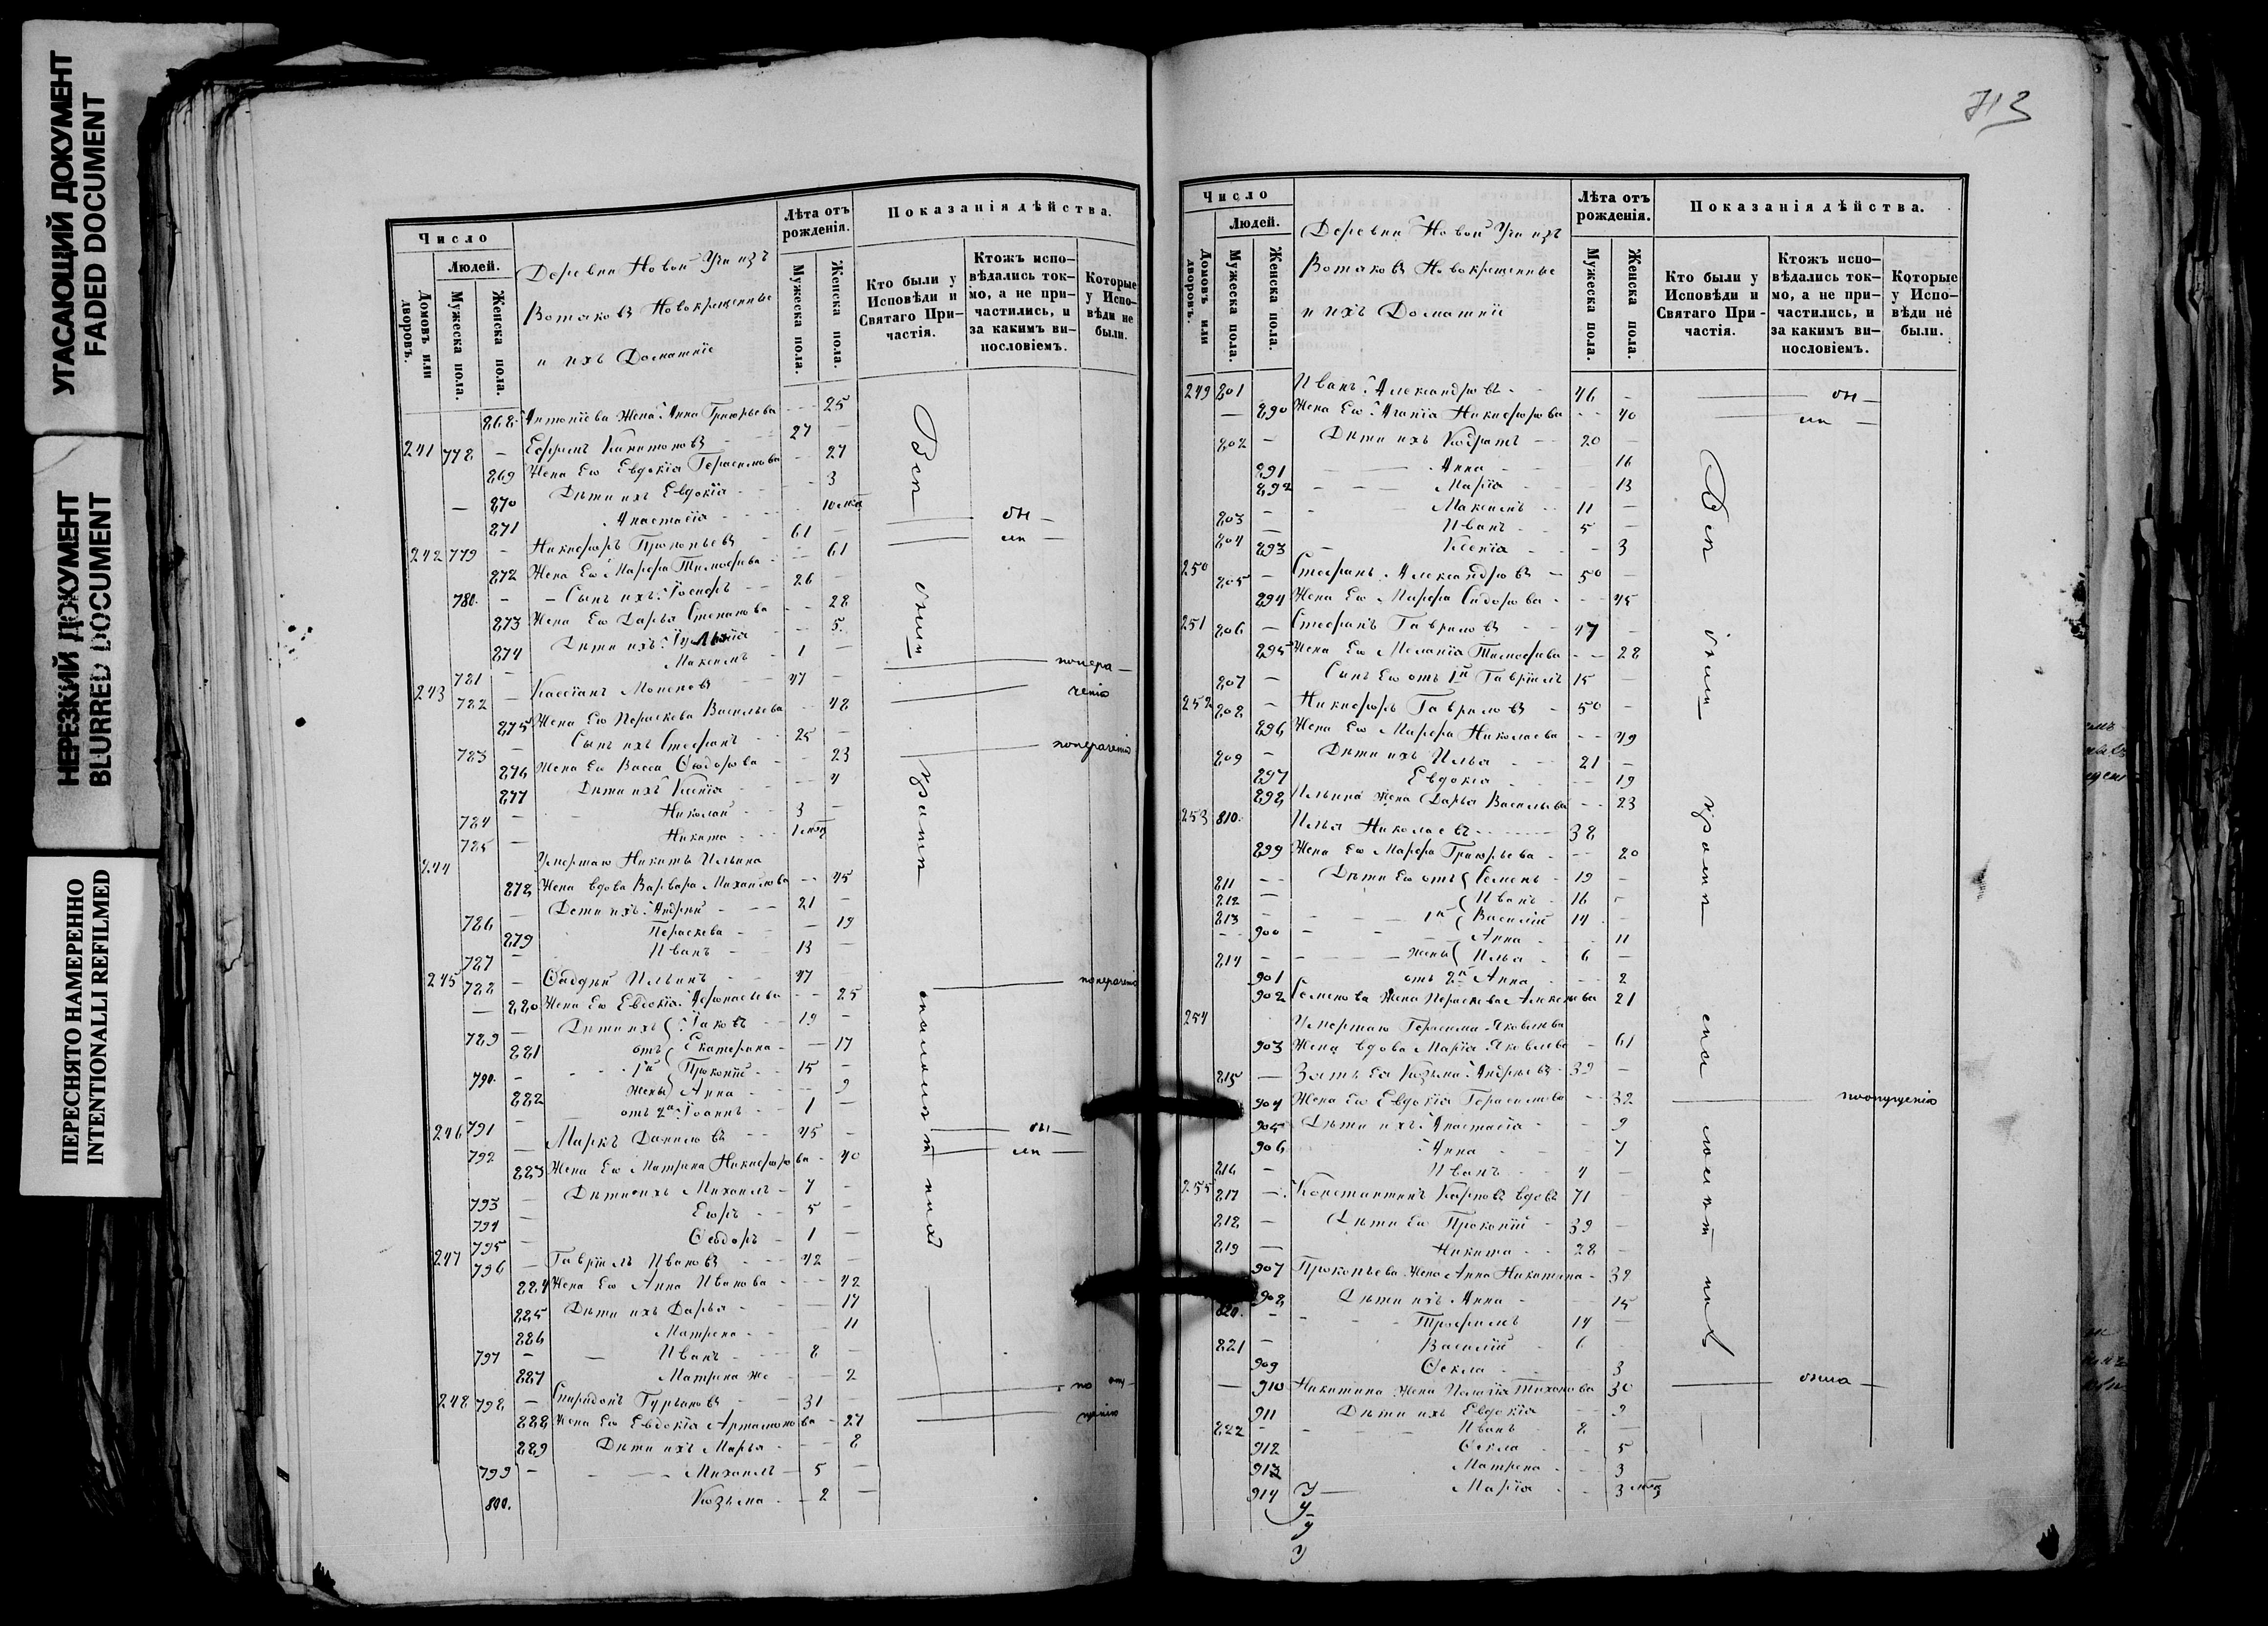 УГАСАЮЩИЙ ДОКУМЕНТ
FADED DOCUMENT
НЕРЕЗКИЙ ДОКУМЕНТ
BLURRED DOCUMENT
ПЕРЕСНЯТО НАМЕРЕННО
INTENTIONALLI REFILMED
Число
Людей.
Домовъ или дворовъ.
Мужеска пола.
Женска пола.
Деревни Новой Учи изъ
Вотяковъ Новокрещенные
и ихъ Домашніе
Лѣта отъ рожденія.
Мужеска пола.
Женска пола.
Показанія дѣйства.
Кто были у Исповѣди и Святаго Причастія.
Ктожъ исповѣдались токмо, а не причастились, и за какимъ винословіемъ.
Которые у Исповѣди не были.
868 Антоніева Жена Анна Григорьева - - - 25
241 778 - Ефремъ Капитоновъ 27 -
869 Жена Его Евдокія Герасимова - - 27
- 870 Дѣти ихъ Евдокія - - 3
871 Анастасія
242 779 - Никифоръ Прокопьевъ 61
872 Жена Его Марфа Тимофеева - 61
780. - - Сынъ ихъ Іосифъ - - 26 -
873 Жена Его Дарья Степанова - - 28
874 Дѣти ихъ - - 5.
781 - Максимъ - 1 -
243 782 - Кассіанъ 47 -
875 Жена Его Параскева Васильева - - 48
783 - Сынъ ихъ Стефанъ - - 25 -
876 Жена Его Васса Ѳедорова - - 23
877 Дѣти ихъ Ксенія - 4
784 - Николай - - 3 -
785 - Никита - - -
244 Умершаго Никиты Ильина
878 Жена вдова Варвара Михайлова - - 45
786 - Дети ихъ Андрей - - 21 -
879 Параскева - - - 19
787 - Иванъ - - 13 -
245 788 - Ѳаддей Ильинъ - - 47 -
- 880 Жена Его Евдокія Афонасьева - - 25
789 - Дѣти ихъ Іаковъ - - 19 -
881 отъ Екатерина - - 17
790. - 1й Прокопій - - 15 -
882 жены Анна - - - 9
791 - отъ 2й Іоаннъ - - 1 -
246 792 - Маркъ Даниловъ - - 45 -
883 Жена Его Матрена Никифорова - 40
793 - Дѣти ихъ Михаилъ - 7 -
794 - Егоръ - - 5 -
795 - Ѳеодоръ - 1 -
247 796 - Гавріилъ Ивановъ - - 42 -
884 Жена Его Анна Иванова - - - 42
885 Дѣти ихъ Дарья - - - 17
886 Матрена - - - 11
797 - Иванъ - - - 8 -
887 Матрена же - - 2
248 798 - Спиридонъ Гурьяновъ - - 31
888 Жена Его Евдокія Артамонова - 27
889 Дѣти ихъ Марья - - - 8
799 - Михаилъ - 5 -
800. Козьма - - 2 -
713
Число
Людей.
Домовъ или дворовъ.
Мужеска пола.
Женска пола.
Деревни Новой Учи изъ
Вотяковъ Новокрещенные
и ихъ Домашніе
Лѣта отъ рожденія.
Мужеска пола.
Женска пола.
Показанія дѣйства.
Кто были у Исповѣди и Святаго Причастія.
Ктожъ исповѣдались токмо, а не причастились, и за какимъ винословіемъ.
Которые у Исповѣди не были.
249 801 Иванъ Александровъ - - 46 -
- 890 Жена Его Агапія Никифорова - - 40
802 - Дѣти ихъ - - 20 -
891 Анна - - 16
892 Марія - - 13
803 - Максимъ - - 11 -
804 Иванъ - - 5 -
893 Ксенія - - - 3
250 805 - Стефанъ Александровъ - 50 -
894 Жена Его Марфа Сидорова - - - 45
251 806 - Стефанъ Гавриловъ - - 47 -
895 Жена Его Меланія Тимофеева - - 28
807 - Сынъ Его отъ 1й Гавріилъ 15 -
252 808 - Никифоръ Гавриловъ - 50 -
896 Жена Его Марфа Николаева - - 49
809 - Дѣти ихъ Илья - - - 21 -
897 Евдокія - - - 19
898 Ильина жена Дарья Васильева - - 23
253 810. Илья Николаевъ - - - - 38
899 Жена Его Марфа Григорьева - - - 20
811 - - Дѣти Его отъ Семенъ - 19 -
812 - Иванъ - 16 -
813 - 1й Василій 14 -
900 - Анна - - 11
814 - жены Илья - 6 -
901 отъ 2й Анна - - - 2
902 Семенова Жена Параскева Алексеева 21
254 Умершаго Герасима Яковлева
903 Жена вдова Марія Яковлева - 61
815 - Зять Ея Козьма Андреевъ - 39 -
904 Жена Его Евдокія Герасимова - - 32
905 Дѣти ихъ Анастасія - - 9
906 Анна - - - 7
816 - Иванъ - - 4 -
255 817 - Константинъ Карповъ вдовъ 71 -
818 - Дѣти Его Прокопій - 39 -
819 - Никита - - 28 -
907 Прокопьева Жена Анна Никитина - 39
908 Дѣти ихъ Анна - - 15
820. - Трофимъ 14 -
821 - Василій 6 -
909 Ѳекла - - - 3
- 910 Никитина Жена Пелагія Тихонова 30
911 Дѣти ихъ Евдокія - - 9
822 - Иванъ 8 -
912 Ѳекла - - 5
913 Матрена - - 3
914 Марія